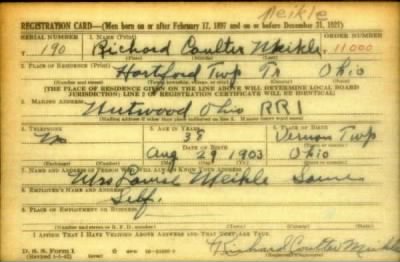 Meikle
REGISTRATION CARD—(Men born on or after February 17, 1897 and on or before December 31, 1921)
SERIAL NUMBER 1. NAME (Print) ORDER NUMBER
T 190 Richard Coulter Meikle 11000
(First) (Middle) (Last)
2. PLACE OF RESIDENCE (Print)
Hartford Twp Tr Ohio
(Number and street) (Town, township, village, or city) (County) (State)
[THE PLACE OF RESIDENCE GIVEN ON THE LINE ABOVE WILL DETERMINE LOCAL BOARD
JURISDICTION; LINE 2 OF REGISTRATION CERTIFICATE WILL BE IDENTICAL]
3. MAILING ADDRESS
Ohio RR1
[Mailing address if other than place indicated on line 2. If same insert word same]
4. TELEPHONE 5. AGE IN YEARS 6. PLACE OF BIRTH
no 38 Vernon Twp
DATE OF BIRTH (Town or county)
Aug 29 1903 Ohio
(Exchange) (Number) (Mo.) (Day) (Yr.) (State or country)
7. NAME AND ADDRESS OF PERSON WHO WILL ALWAYS KNOW YOUR ADDRESS
Mrs Louise Meikle Same
8. EMPLOYER'S NAME AND ADDRESS
Self.
9. PLACE OF EMPLOYMENT OR BUSINESS
(Number and street or R. F. D. number) (Town) (County) (State)
I AFFIRM THAT I HAVE VERIFIED ABOVE ANSWERS AND THAT THEY ARE TRUE.
D. S. S. Form 1
Richard Coulter Meikle